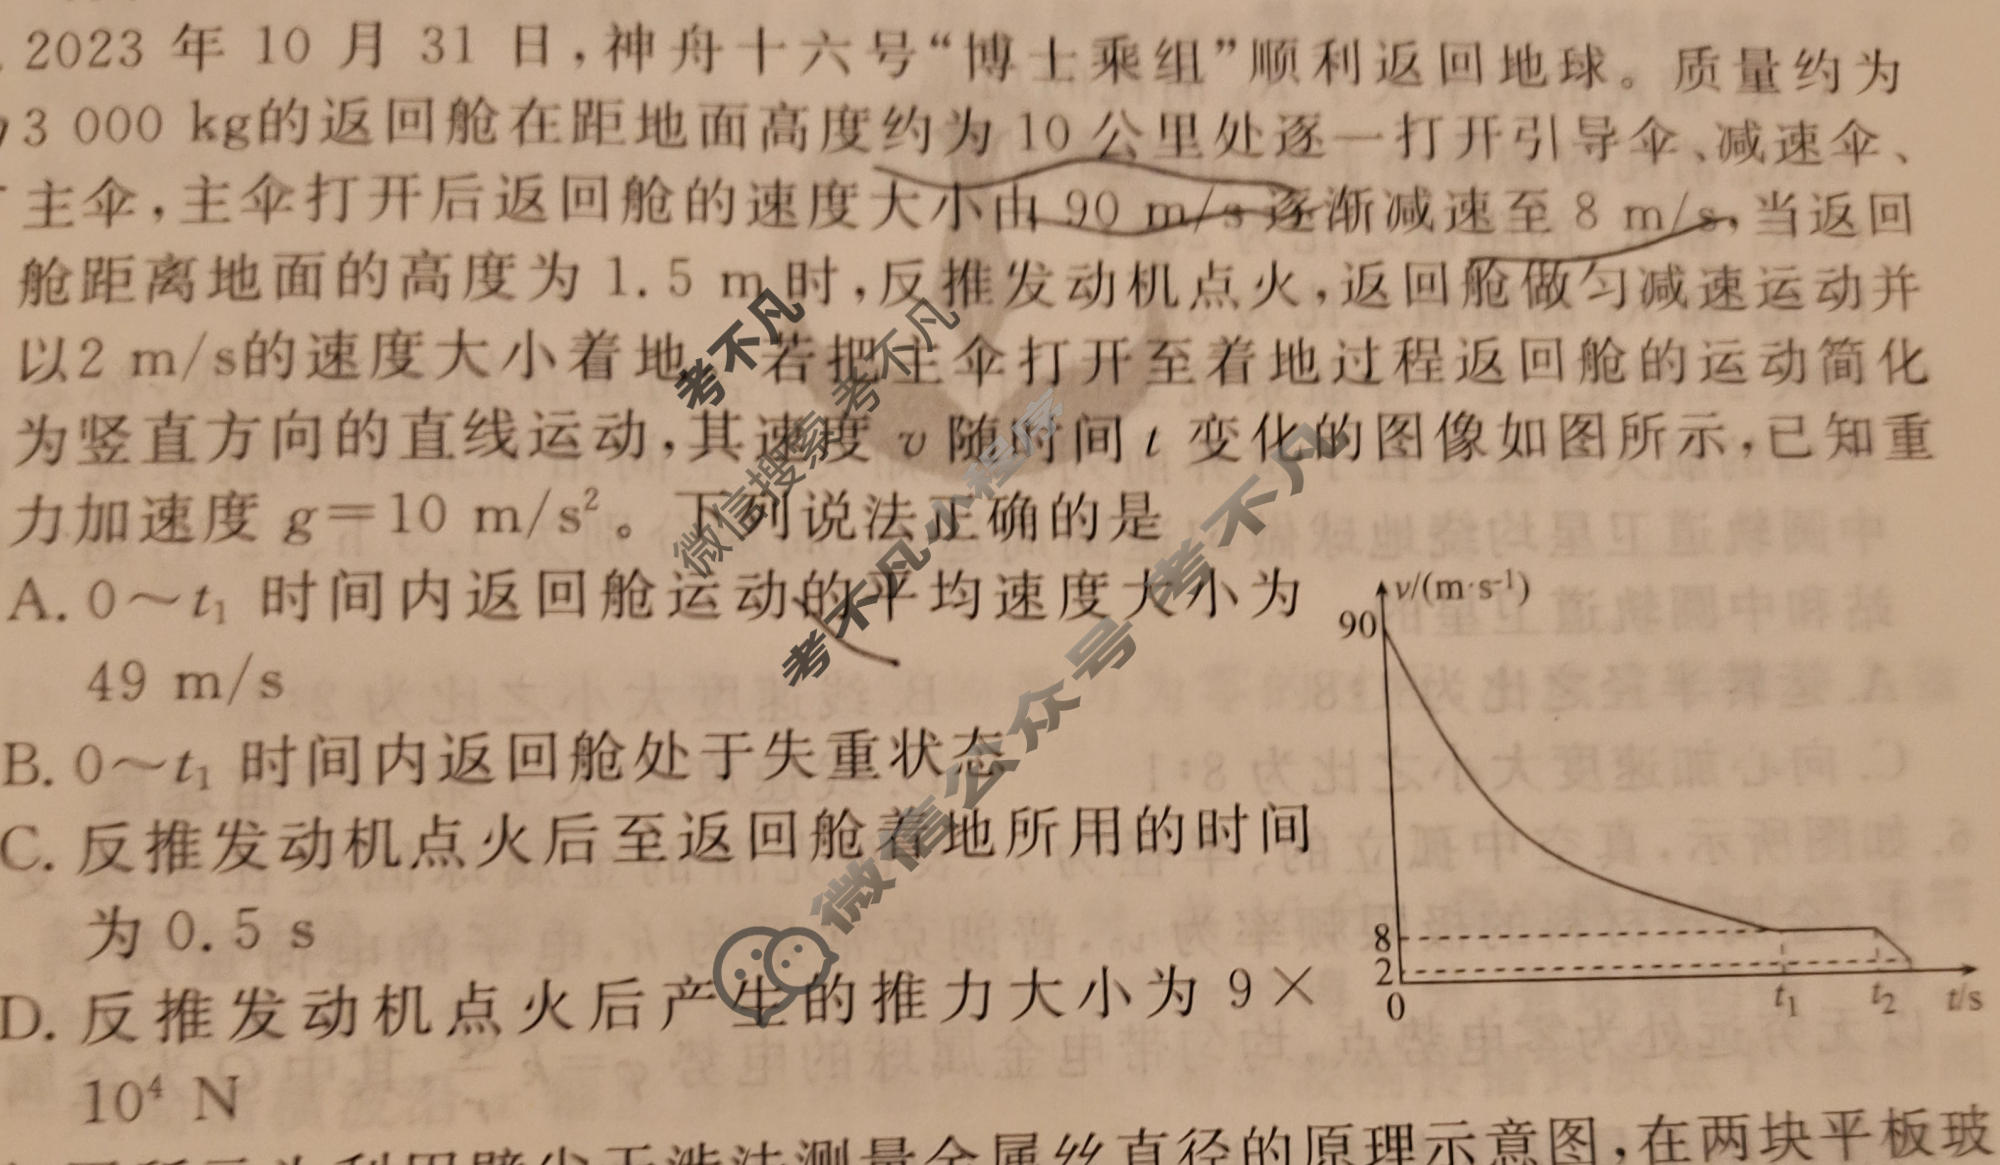 2023 年 10 月 31 日，神舟十六号“博士乘组”顺利返回地球。质量约为
3 000 kg的返回舱在距地面高度约为 10 公里处逐一打开引导伞、减速伞、
主伞，主伞打开后返回舱的速度大小由 90 m/s 逐渐减速至 8 m/s，当返回
舱距离地面的高度为 1.5 m 时，反推发动机点火，返回舱做匀减速运动并
以2 m/s的速度大小着地 若把主伞打开至着地过程返回舱的运动简化
为竖直方向的直线运动，其速度 v 随时间 t 变化的图像如图所示，已知重
力加速度 g＝10 m/s²。下列说法正确的是
A. 0～t₁ 时间内返回舱运动的平均速度大小为
49 m/s
B. 0～t₁ 时间内返回舱处于失重状态
C. 反推发动机点火后至返回舱着地所用的时间
为 0.5 s
D. 反推发动机点火后产生的推力大小为 9×
10⁴ N
v/(m·s⁻¹)
90
8
2
0
t₁
t₂
t/s
考不凡
微信搜索 考不凡
考不凡小程序
微信公众号 考不凡
利用劈尖干涉法测量金属丝直径的原理示意图，在两块平板玻